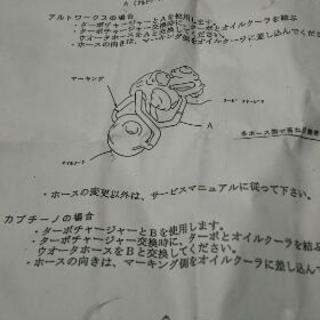 A (アルト
アルトワークスの場合
・ターボチャージャーとAを使用します。
・ターボチャージャー交換時に、ターボとオイルクーラを結ぶ
ウオータホースをAと交換してください。
・ホースの向きは、マーキング側をオイルクーラに差し込んでくださ
マーキング
A
オイルクーラ
・ホースの変更以外は、サービスマニュアルに従って下さい。
カプチーノの場合
・ターボチャージャーとBを使用します。
・ターボチャージャー交換時に、ターボとオイルクーラを結ぶ
ウオータホースをBと交換してください。
・ホースの向きは、マーキング側をオイルクーラに差し込んで